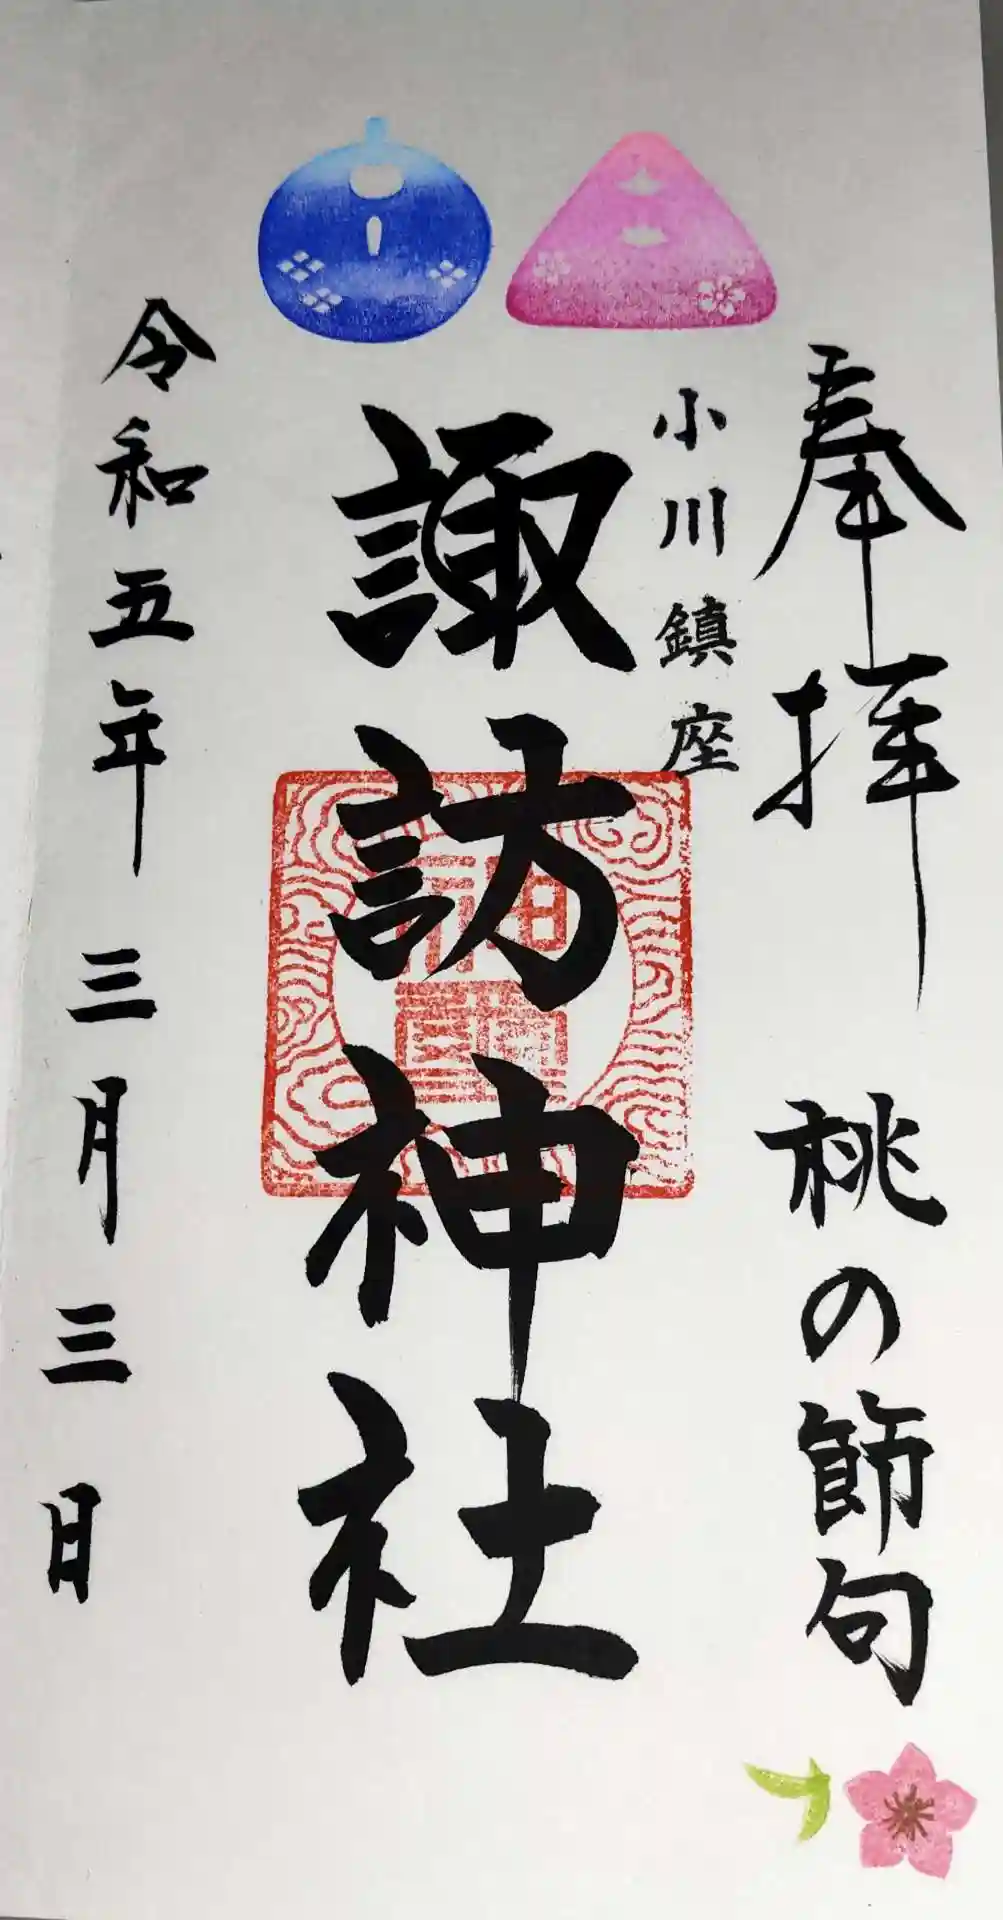 奉拝 桃の節句
小川鎮座
諏訪神社
令和五年三月三日